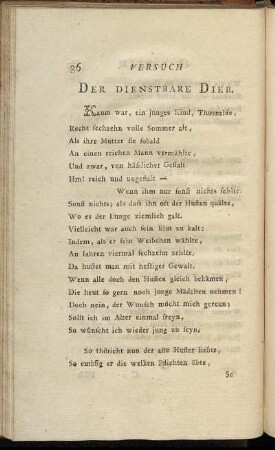 36 VERSUCH
DER DIENSTBARE DIEB.
Kaum war, ein junges Kind, Thusnelde,
Recht sechzehn volle Sommer alt,
Als ihre Mutter sie sobald
An einen reichen Mann vermählte,
Und zwar, von häslicher Gestalt
Hm! reich und ungestalt —
Wenn ihm nur sonst nichts fehlte.
Sonst nichts; als dass ihn oft der Husten quälte,
Wo es der Lunge ziemlich galt.
Vielleicht war auch sein Blut zu kalt:
Indem, als er sein Weibchen wählte,
An Jahren viermal sechzehn zehlte.
Da hustet man mit heftiger Gewalt.
Wenn alle doch den Husten gleich bekämen,
Die heut so gern noch junge Mädchen nehmen!
Doch nein, der Wunsch möcht mich gereun;
Sollt ich im Alter einmal freyn,
So wünscht ich wieder jung zu seyn.
So thöricht nun der alte Huster liebte,
So emssig er die welken Pflichten übte,
So